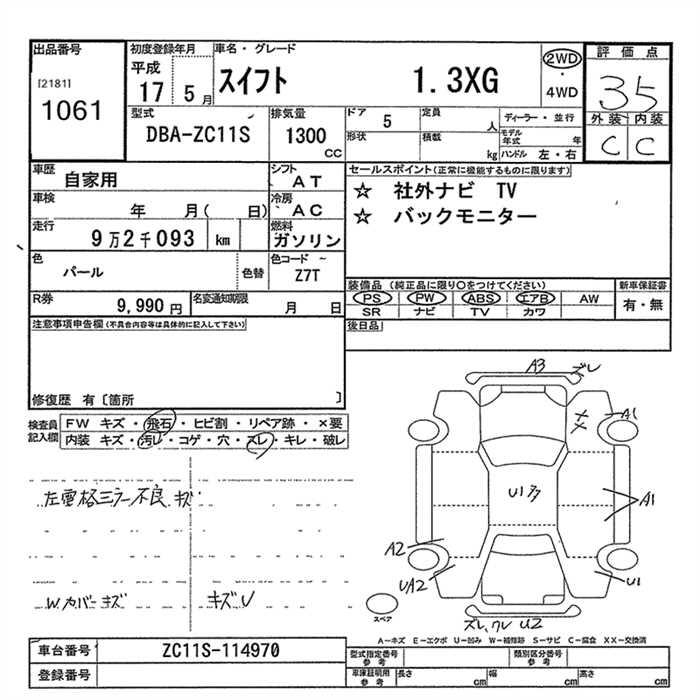 出品番号
[2181]
1061
初度登録年月
平成
17 5 月
車名・グレード
スイフト 1.3XG
2WD
・
4WD
評価点
35
外装 内装
C C
型式
DBA-ZC11S
排気量
1300
CC
ドア 5
定員 人
形状
積載 kg
ディーラー・並行
モデル年式 年
ハンドル 左・右
車歴
自家用
シフト
AT
車検
年 月( 日)
冷房
AC
走行
9万2千093 km
燃料
ガソリン
色
パール
色替
色コード ~
Z7T
R券
9,990 円
名変通知期限
月 日
セールスポイント(正常に機能するものに限ります)
☆ 社外ナビ TV
☆ バックモニター
装備品(純正品に限り○をつけてください)
PS PW ABS エアB AW
SR ナビ TV カワ
新車保証書
有・無
後日品
注意事項申告欄(不具合内容等は具体的に記入して下さい)
修復歴 有〔箇所 〕
検査員記入欄
FW キズ・飛石・ヒビ割・リペア跡・×要
内装 キズ・汚レ・コゲ・穴・スレ・キレ・破レ
左電格ミラー不良 キズ
W.カバーキズ
キズU
A3 ズレ
A1
U1 多
A1
A2
UA2
U1
ズレ,ワレ U2
スペア
A-キズ E-エクボ U-凹み W-補修跡 S-サビ C-腐食 XX-交換済
車台番号 ZC11S-114970
登録番号
型式指定番号 参考
類別区分番号 参考
車庫証明用 参考
長さ cm
幅 cm
高さ cm